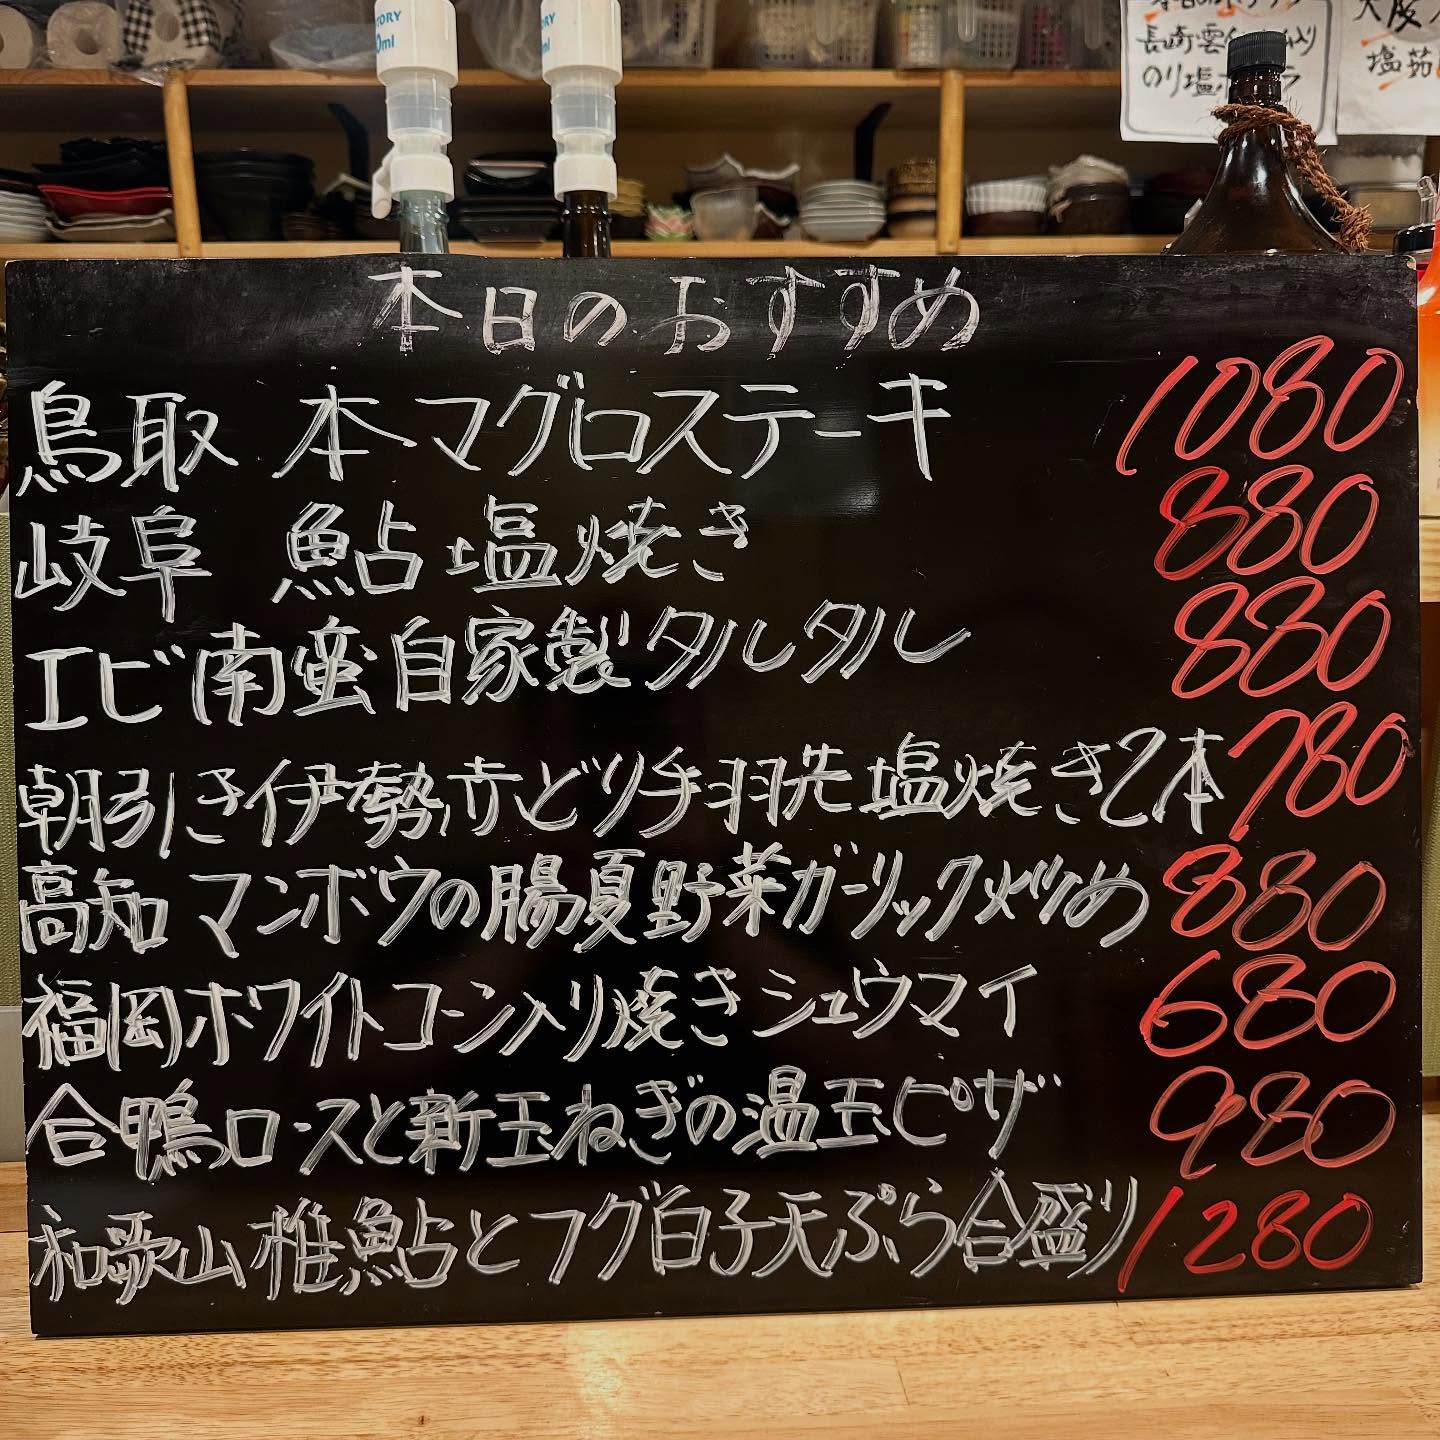 長崎雲
のり塩ポ
塩茹
本日のおすすめ
鳥取 本マグロステーキ 1080
岐阜 鮎塩焼き 880
エビ南蛮自家製タルタル 880
朝引き伊勢赤どり手羽先塩焼き2本 780
高知 マンボウの腸夏野菜ガーリック炒め 880
福岡ホワイトコーン入り焼きシュウマイ 680
合鴨ロースと新玉ねぎの温玉ピザ 980
和歌山 稚鮎とフグ白子天ぷら合盛り 1280